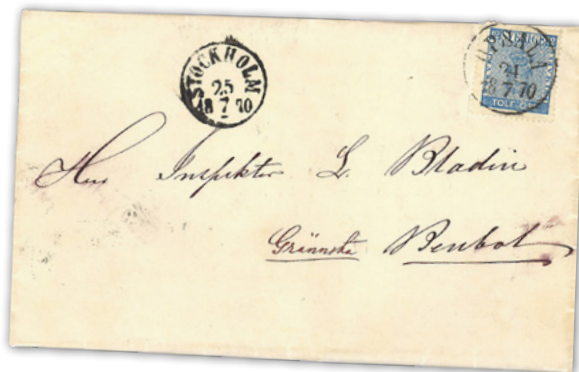 STOCKHOLM
25
18 7 70
UPSALA
24
18 7 70
SVERIGE
TOLF ÖRE
Herr Inspektor L. Bladin
Benbol